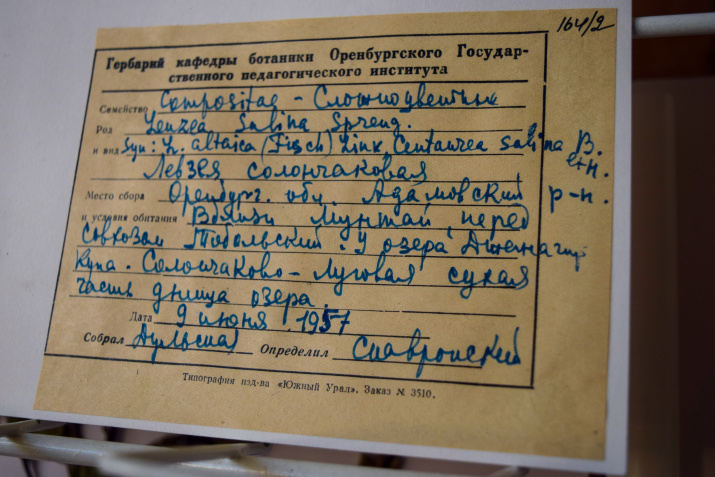 164/2
Гербарий кафедры ботаники Оренбургского Государ-
ственного педагогического института
Семейство Compositae – Сложноцветных
Род Leuzea Salina Spreng.
и вид Syn: L. altaica (Fisch) Link, Centaurea salina B.
Левзея солончаковая
Место сбора Оренбург. обл. Адамовский р-н.
и условия обитания Вблизи перед
совхозом Тобольский. У озера
Солончаково-луговая сухая
часть днища озера.
Дата 9 июня 1957
Собрал Определил
Типография изд-ва «Южный Урал». Заказ № 3510.